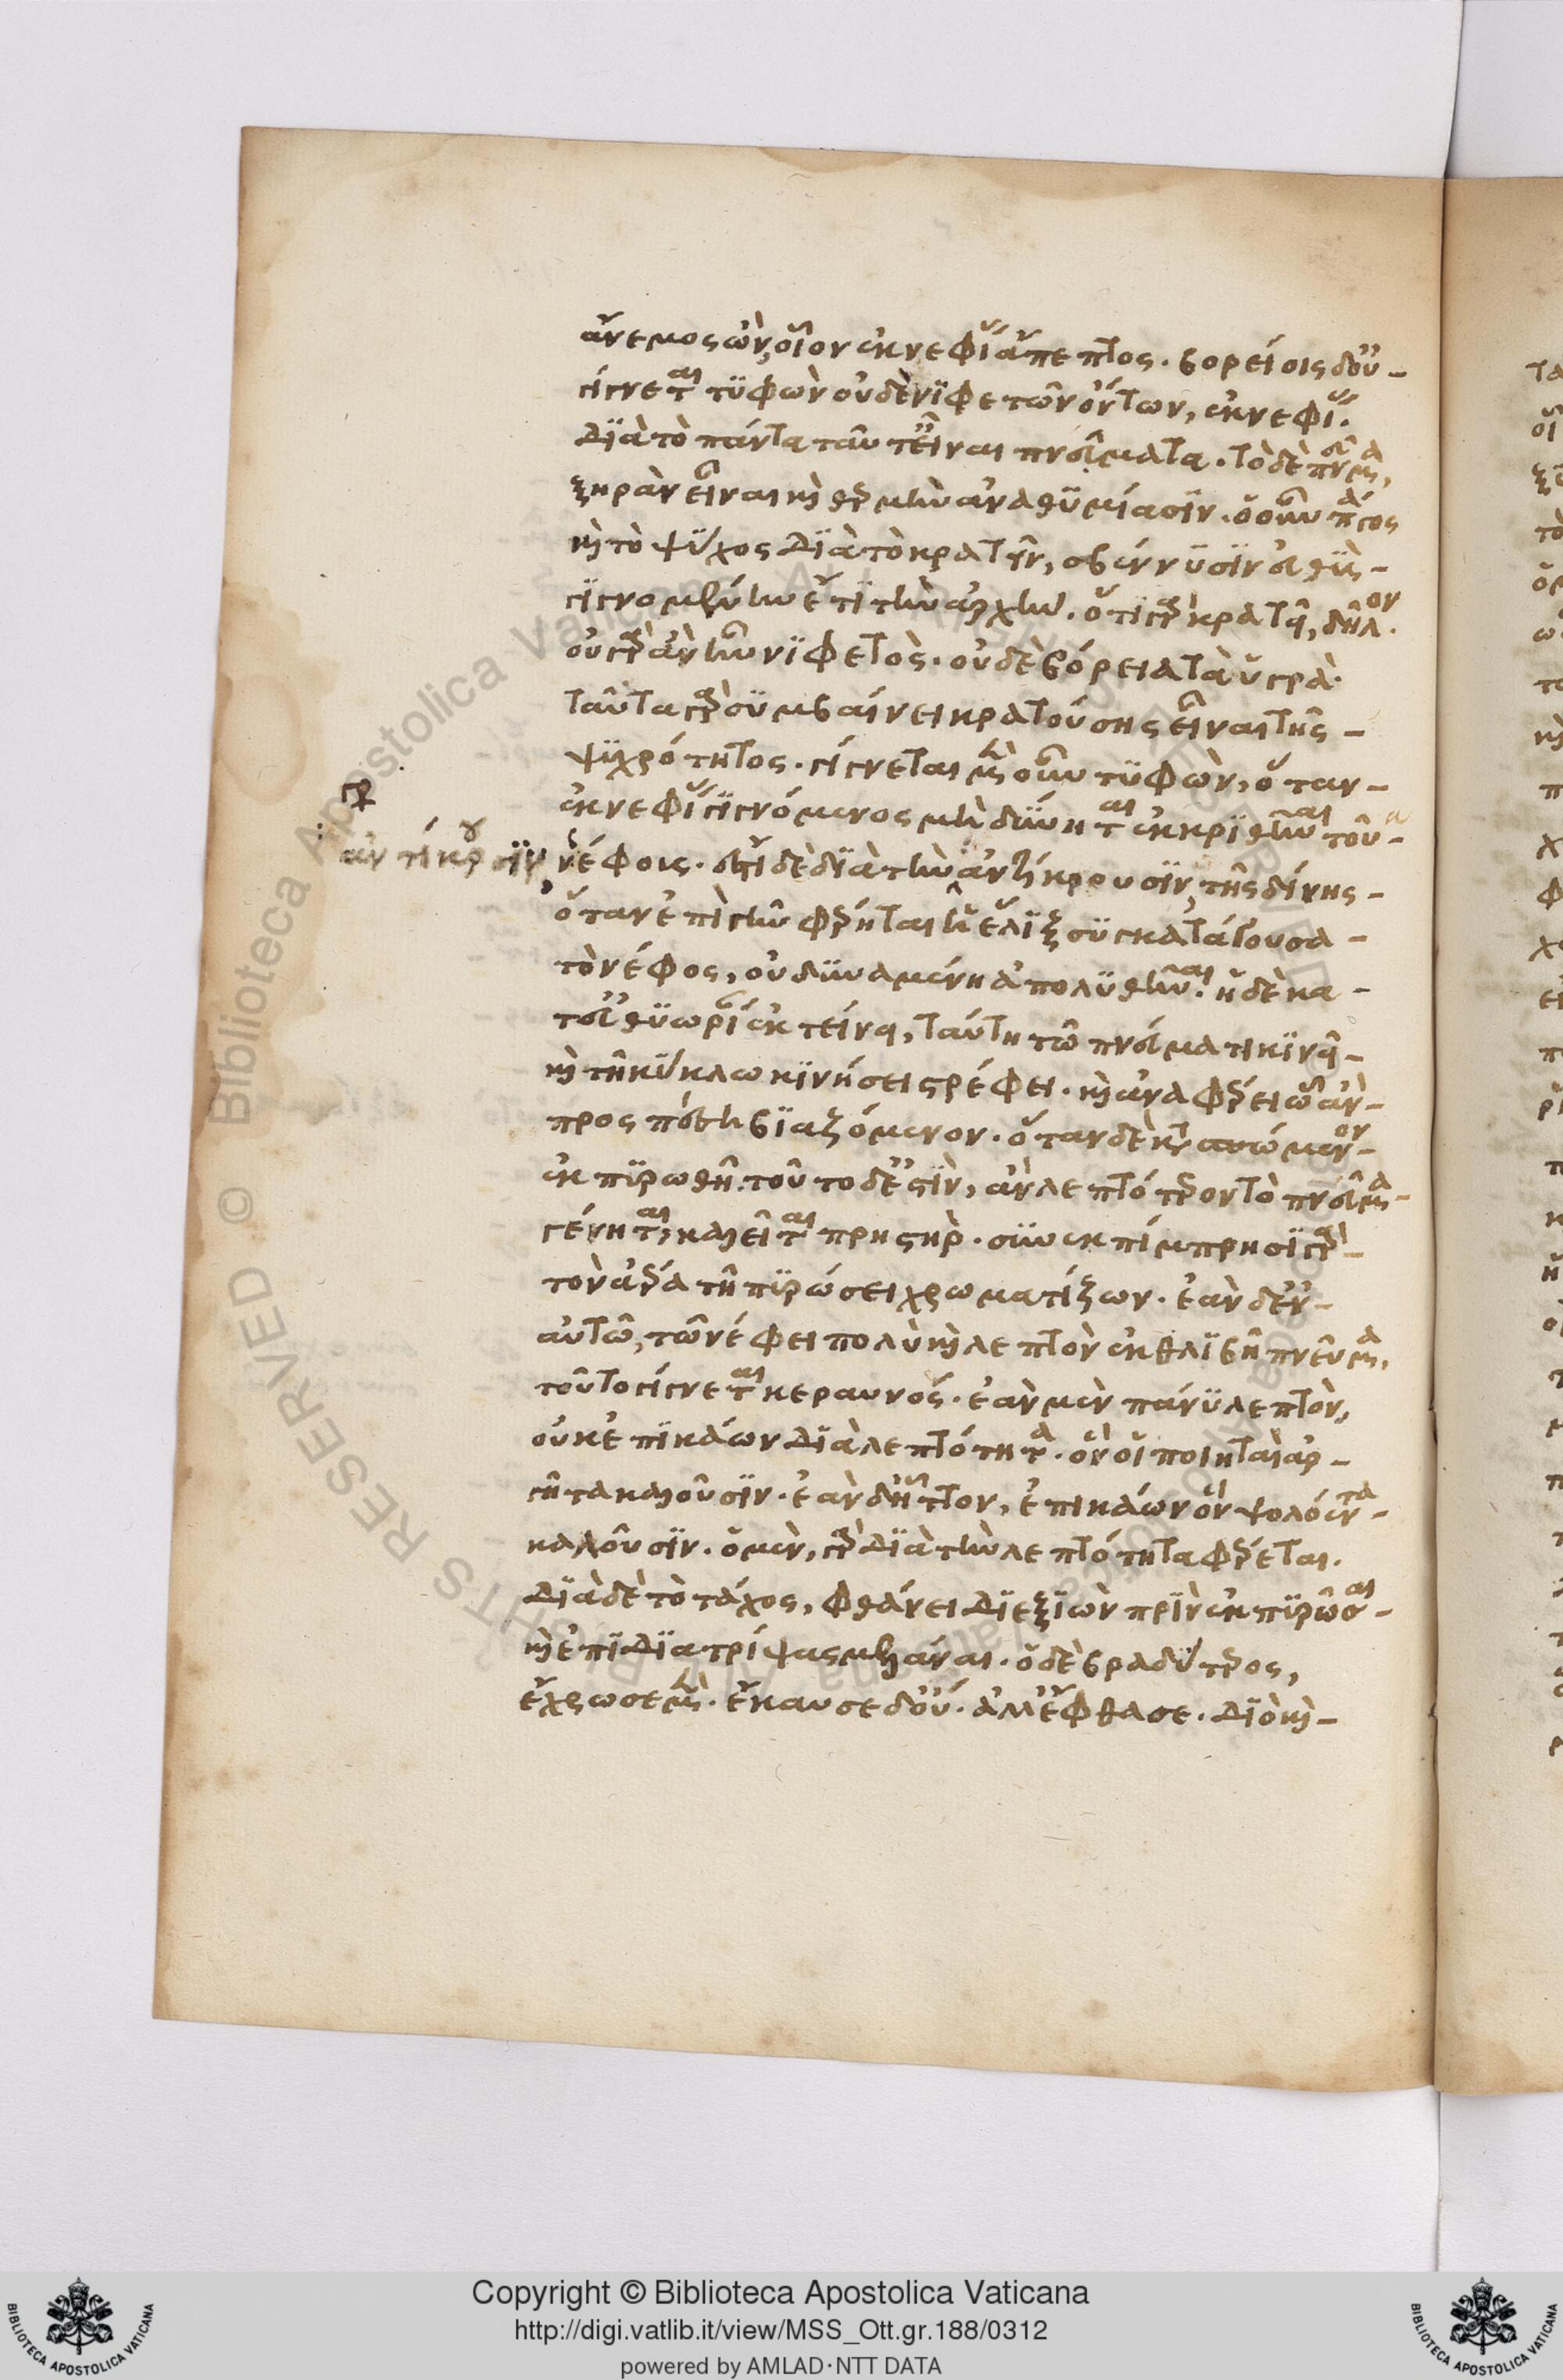 ἄνεμος ὢν, οἷον ἐκνεφίας ἄπεπτος. βορείοις δ' οὐ-
γίγνεται τυφῶν οὐδὲ νιφετῶν ὄντων, ἐκνεφίας.
διὰ τὸ πάντα ταῦτ' εἶναι πνεῦματα. τὸ δὲ πνεῦμα,
ξηρὰν εἶναι καὶ θερμὴν ἀναθυμίασιν. ὁ οὖν πάγος
καὶ τὸ ψύχος διὰ τὸ κρατεῖν, σβεννύσιν εὐθὺς-
γιγνομένην ἔτι τὴν ἀρχήν. ὅτι γὰρ κρατεῖ, δῆλον.
οὐ γὰρ ἂν ἦν νιφετὸς. οὐδὲ βόρεια τὰ ὑγρὰ.
ταῦτα γὰρ συμβαίνει κρατούσης εἶναι τῆς-
ψυχρότητος. γίγνεται μὲν οὖν τυφὼν, ὅταν-
ἐκνεφίας γιγνόμενος μὴ δύνηται ἐκκριθῆναι τοῦ-
ἀντίκρουσιν
νέφους. ἔστι δὲ διὰ τὴν ἀντίκρουσιν, τῆς δίνης-
ὅταν ἐπὶ γῆν φέρηται ἡ ἕλιξ συγκατάγουσα-
τὸ νέφος, οὐ δυναμένη ἀπολυθῆναι. ᾗ δὲ κα-
τ' εὐθυωρίαν ἐκτείνει, ταύτῃ τῷ πνεύματι κινεῖ-
καὶ τῇ κύκλῳ κινήσει στρέφει. καὶ ἀναφέρει ᾧ ἂν-
προσπέσῃ βιαζόμενον. ὅταν δὲ κατασπώμενον-
ἐκπυρωθῇ. τοῦτο δ' ἐστὶν, ἂν λεπτότερον τὸ πνεῦμα-
γένηται, καλεῖται πρηστὴρ. συνεκπίμπρησι γὰρ-
τὸν ἀέρα τῇ πυρώσει χρωματίζων. ἐὰν δ' ἐν-
αὐτῷ, τῷ νέφει πολὺ καὶ λεπτὸν ἐκθλιβῇ πνεῦμα,
τοῦτο γίγνεται κεραυνός. ἐὰν μὲν πάνυ λεπτὸν,
οὐκ ἐπικάων διὰ λεπτότητα. ὃν οἱ ποιηταὶ ἀρ-
γῆτα καλοῦσιν. ἐὰν δ' ἧττον, ἐπικάων ὃν ψολόεντα-
καλοῦσιν. ὁ μὲν, γὰρ διὰ τὴν λεπτότητα φέρεται.
διὰ δὲ τὸ τάχος, φθάνει διεξιὼν πρὶν ἐκπυρῶσαι-
καὶ ἐπιδιατρίψας μελάναι. ὁ δὲ βραδύτερος,
ἔχρωσε μὲν. ἔκαυσε δ' οὔ. ἀλλ' ἔφθασε. διὸ καὶ-
Copyright © Biblioteca Apostolica Vaticana
http://digi.vatlib.it/view/MSS_Ott.gr.188/0312
powered by AMLAD·NTT DATA
BIBLIOTECA APOSTOLICA VATICANA
BIBLIOTECA APOSTOLICA VATICANA